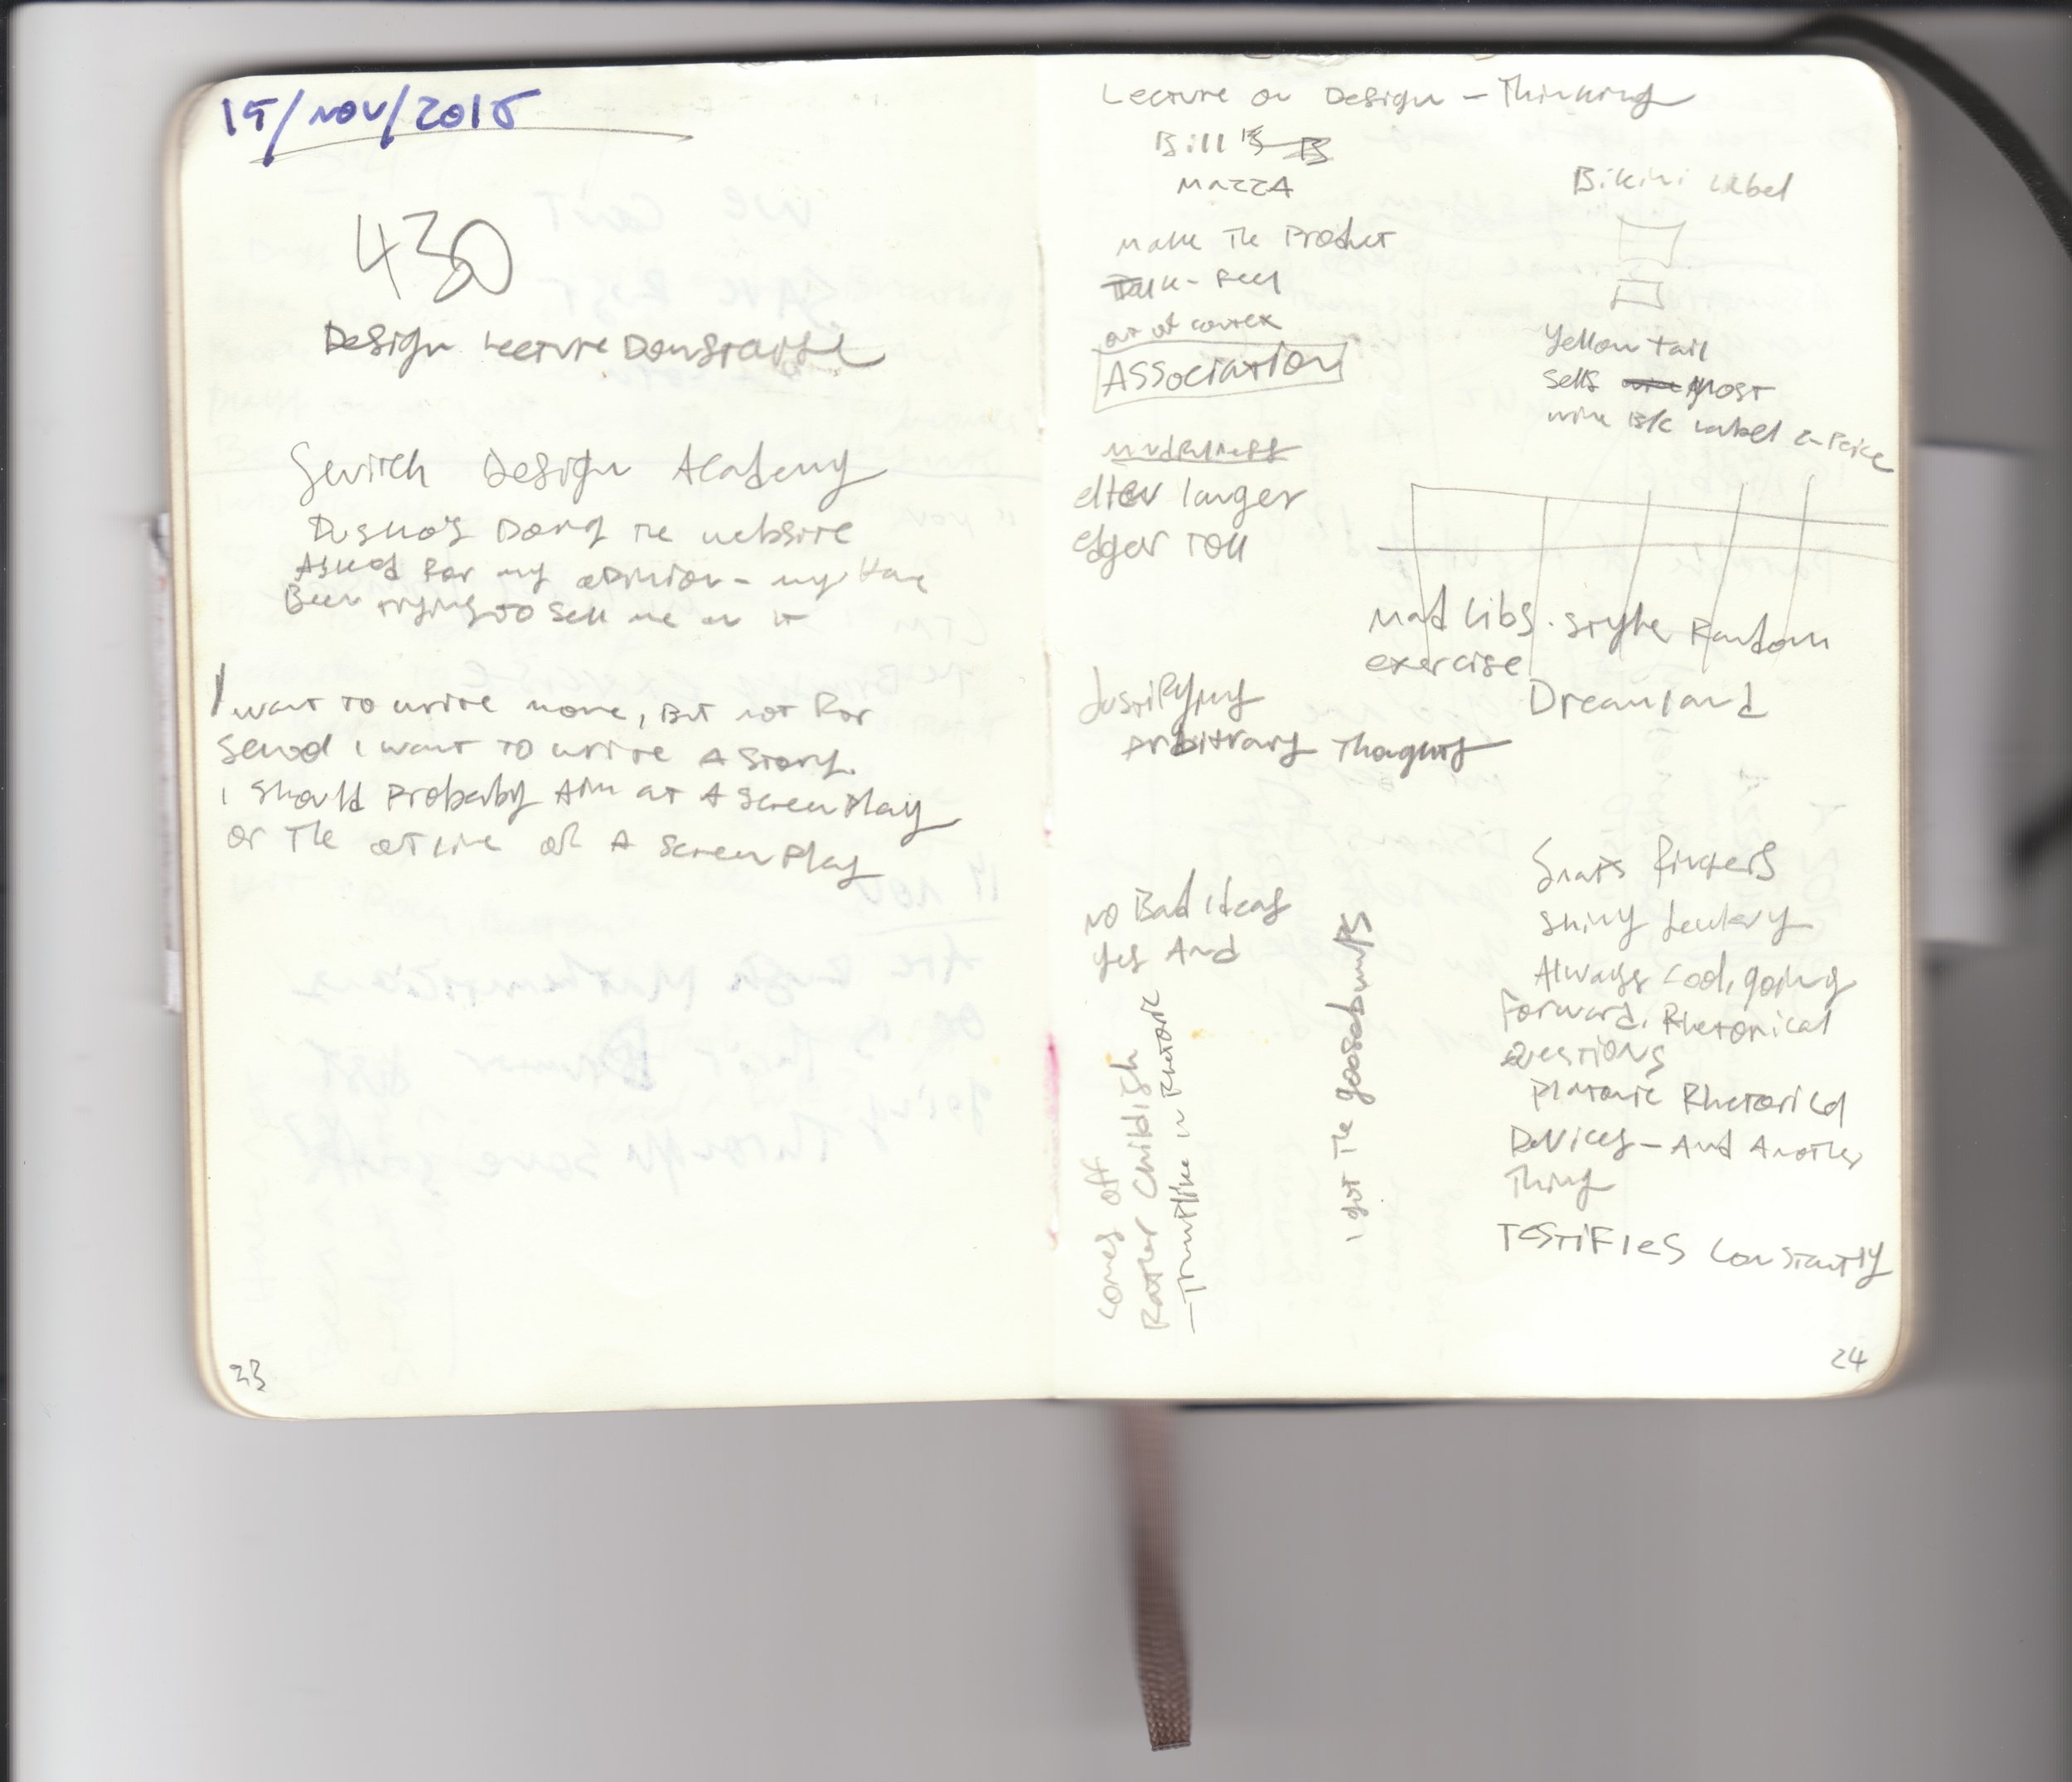 15/NOV/2015
430
Design Lecture Downstairs
Design Academy
Dusko's Doing the website
Asked for my opinion - my have
Been trying to sell me on it
I want to write more, But not for
I want to write A story.
I should Probably Aim at A screen Play
or The outline of A screen Play
23
Lecture on Design - Thinking
Bill
MAZZA
make The Product
Talk - Feel
out of contex
Association
elter larger
edger
Justifying
Arbitrary Thoughts
No Bad Ideas
Yes And
comes off
Rather Childish
- Trumplike in Rhetoric
I got The goosebumps
Bikini label
Yellow tail
sells most
wine B/c label & Price
Mad Libs. style Random
exercise
Dreamland
Snaps fingers
Shiny Jewlery
Always cool, going
Forward, Rhetorical
Questions
Platonic Rhetorical
Devices - And Another
Thing
Testifies constantly
24